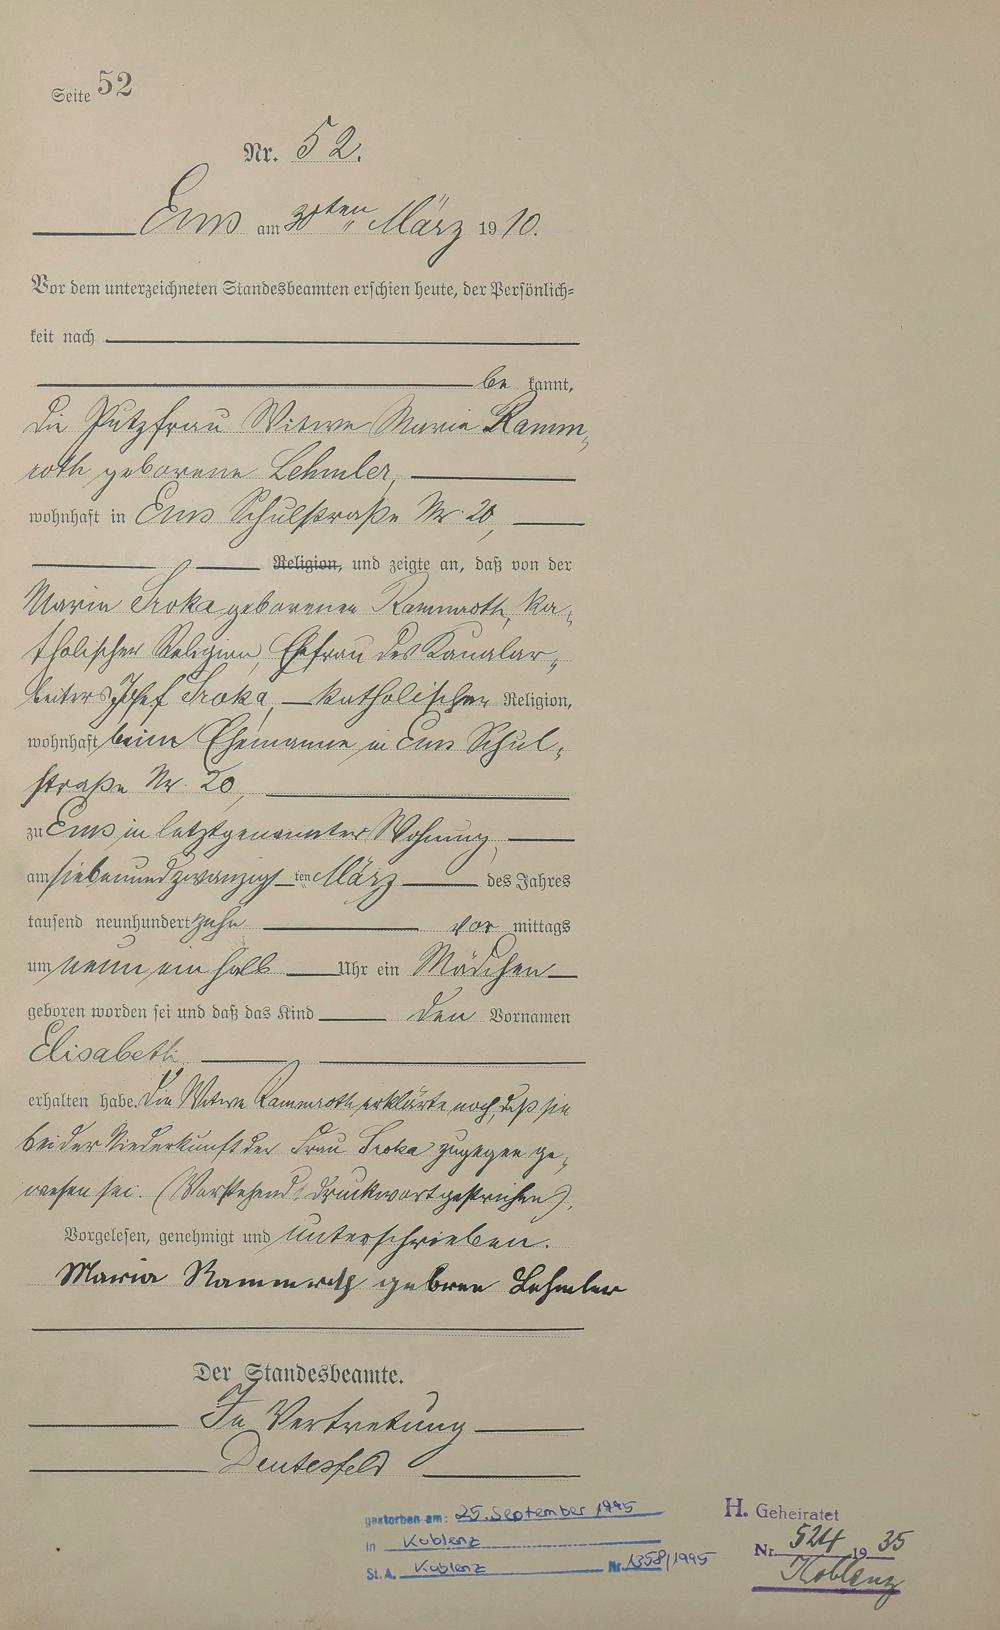 Seite 52
Nr. 52.
Ems am 30ten März 1910.
Vor dem unterzeichneten Standesbeamten erschien heute, der Persönlich=
keit nach
be kannt,
die Putzfrau Witwe Maria Ramm„
roth geborene Lehmler,
wohnhaft in Ems Schulstraße Nr. 20,
Religion, und zeigte an, daß von der
Maria Sroka geborenen Rammroth, ka„
tholischer Religion, Ehefrau des Kanalar„
beiters Josef Sroka, katholischer Religion,
wohnhaft beim Ehemanne in Ems Schul„
straße Nr. 20,
zu Ems in letztgenannter Wohnung,
am siebenundzwanzigsten März des Jahres
tausend neunhundert zehn vor mittags
um neun ein halb Uhr ein Mädchen
geboren worden sei und daß das Kind den Vornamen
Elisabeth
erhalten habe. Die Witwe Rammroth erklärte noch, daß sie
bei der Niederkunft der Frau Sroka zugegen ge„
wesen sei. (Vorstehend 1 Druckwort gestrichen).
Vorgelesen, genehmigt und unterschrieben.
Maria Rammroth geboren Lehmler
Der Standesbeamte.
In Vertretung
Deutesfeld
gestorben am: 25. September 1995
in Koblenz
St. A. Koblenz Nr. 1358/1995
H. Geheiratet
Nr. 524 1935
Koblenz